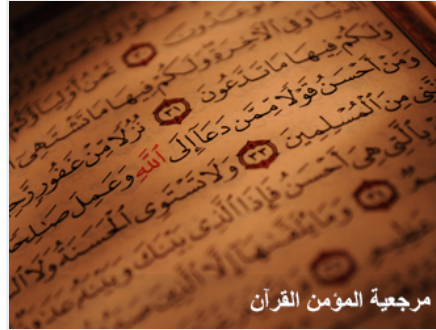 تُوعَدُونَ ٣٠ نَحْنُ أَوْلِيَاؤُكُمْ
ٱلدُّنْيَا وَفِي ٱلْآخِرَةِ وَلَكُمْ فِيهَا مَا تَشْتَهِي
وَلَكُمْ فِيهَا مَا تَدَّعُونَ ٣١ نُزُلًا مِنْ غَفُورٍ رَّحِ
وَمَنْ أَحْسَنُ قَوْلًا مِمَّن دَعَا إِلَى ٱللَّهِ وَعَمِلَ صَٰلِحًا
مِنَ ٱلْمُسْلِمِينَ ٣٣ وَلَا تَسْتَوِي ٱلْحَسَنَةُ وَلَا ٱل
بِٱلَّتِي هِيَ أَحْسَنُ فَإِذَا ٱلَّذِي بَيْنَكَ وَبَيْنَهُ عَدَ
وَمَا يُلَقَّىٰهَا إِلَّا ٱلَّذِينَ
عَظِيمٍ
مرجعية المؤمن القرآن